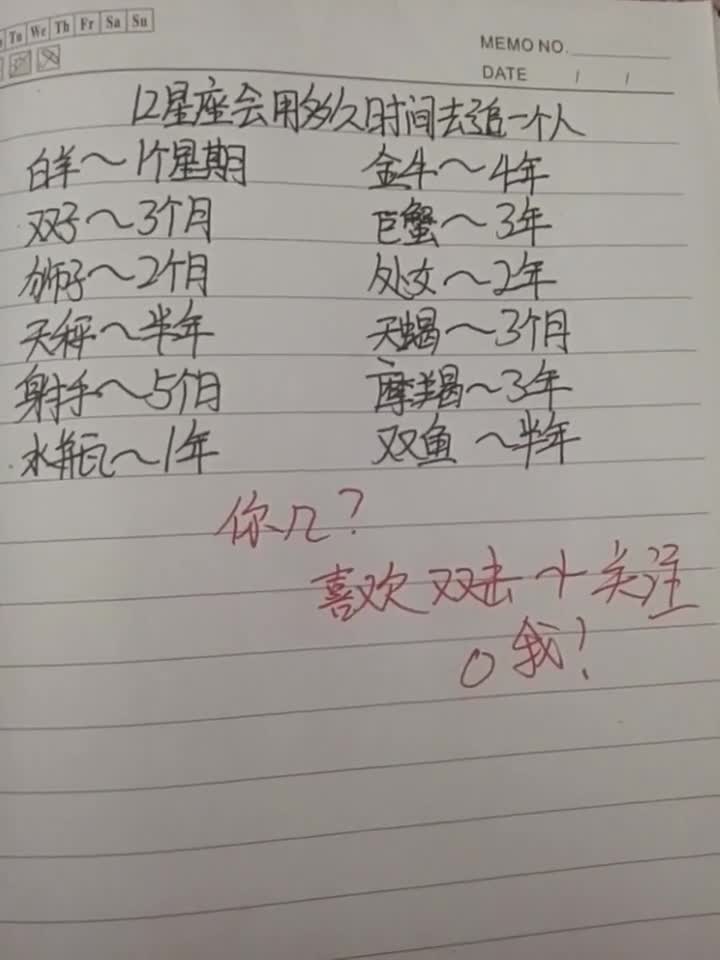 Tu We Th Fr Sa Su
MEMO NO.
DATE / /
12星座会用多久时间去追一个人
白羊～1个星期 金牛～4年
双子～3个月 巨蟹～3年
狮子～2个月 处女～2年
天秤～半年 天蝎～3个月
射手～5个月 摩羯～3年
水瓶～1年 双鱼～半年
你几？
喜欢双击+关注
我！